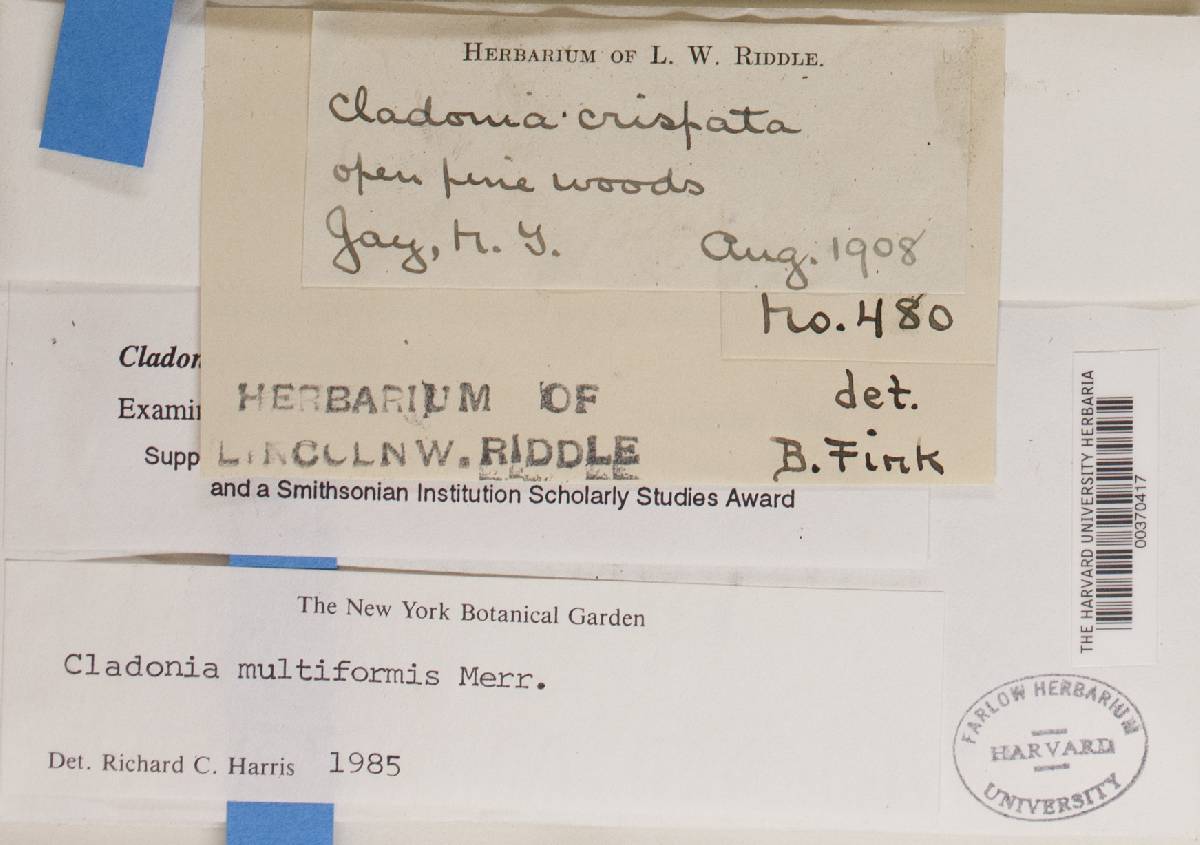 HERBARIUM OF L. W. RIDDLE.
Cladonia crispata
open pine woods
Jay, N. Y. Aug. 1908
No. 480
HERBARIUM OF
LINCOLN W. RIDDLE
det.
B. Fink
Cladon
Exami
Supp
and a Smithsonian Institution Scholarly Studies Award
The New York Botanical Garden
Cladonia multiformis Merr.
Det. Richard C. Harris 1985
THE HARVARD UNIVERSITY HERBARIA
00370417
FARLOW HERBARIUM
HARVARD
UNIVERSITY